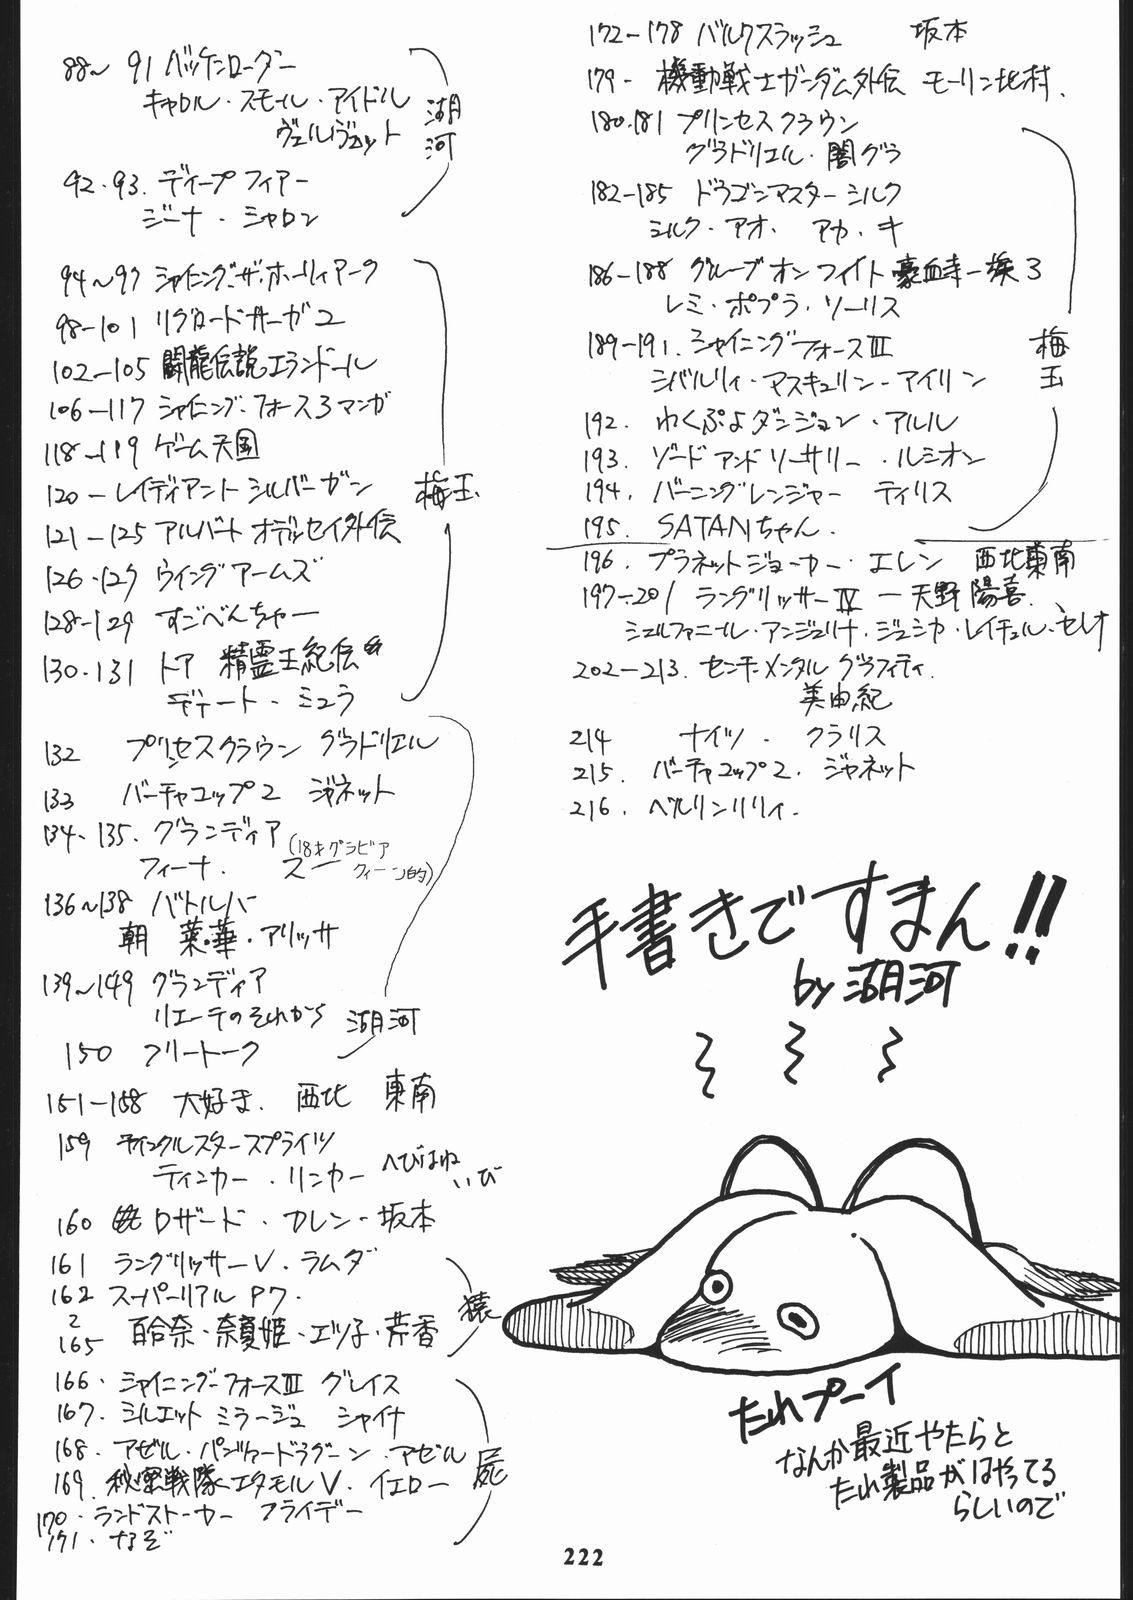 88〜91 バッケンローダー
キャロル・スモール・アイドル
ヴェルヴェット
湖河
92・93. ディープフィアー
ジーナ・シャロン
94〜97 シャイニング・ザ・ホーリィアーク
98-101 リグロードサーガ2
102-105 闘龍伝説エランドール
106-117 シャイニング・フォース3マンガ
118-119 ゲーム天国
120-レイディアントシルバーガン
梅玉
121-125 アルバートオデッセイ外伝
126・127 ウイングアームズ
128-129 すごべんちゃー
130・131 トア 精霊王紀伝
デイート・ミュラ
132 プリンセスクラウン グラドリエル
133 バーチャコップ2 ジャネット
134-135. グランディア
フィーナ. スー(18才グラビアクィーン的)
136〜138 バトルバー
朝 菜・華・アリッサ
139〜149 グランディア
リエーテのそれから 湖河
150 フリートーク
151-158 大好き. 西北 東南
159 ティンクルスタースプライツ
ティンカー・リンカー へびはねいび
160 ロザード・カレン-坂本
161 ラングリッサーV・ラムダ
162 スーパーリアルP7.
2
165 百合奈・奈夏姫・エツ子・芹香
猿
166・シャイニングフォースIII グレイス
167. シルエットミラージュ シャイナ
168. アゼル・パンツァードラグーン・アゼル
屍
169. 秘密戦隊メタモルV・イエロー
170・ランドストーカー フライデー
171・なぞ
172-178 バルクスラッシュ 坂本
179- 機動戦士ガンダム外伝 モーリン北村.
180.181 プリンセスクラウン
グラドリエル・闇グラ
182-185 ドラゴンマスターシルク
シルク・アオ. アカ・キ
186-188 グルーブオンファイト豪血寺一族3
レミ・ポプラ・ソーリス
189-191. シャイニングフォースIII
シバルリィ・アスキュリン-アイリン
梅玉
192. わくぷよダンジョン・アルル
193. ソードアンドソーサリー・ルシオン
194. バーニングレンジャー ティリス
195. SATANちゃん.
196. プラネットジョーカー・エレン 西北東南
197-201 ラングリッサーIV-天野陽喜.
シェルファニール・アンジェリナ・ジェシカ・レイチェル・セレナ
202-213. センチメンタルグラフィティ.
美由紀
214 ナイツ・ クラリス
215. バーチャコップ2. ジャネット
216. ベルリンリリィ.
手書きですまん!!
by 湖河
たれプーイ
なんか最近やたらと
たれ製品がはやってる
らしいので
222